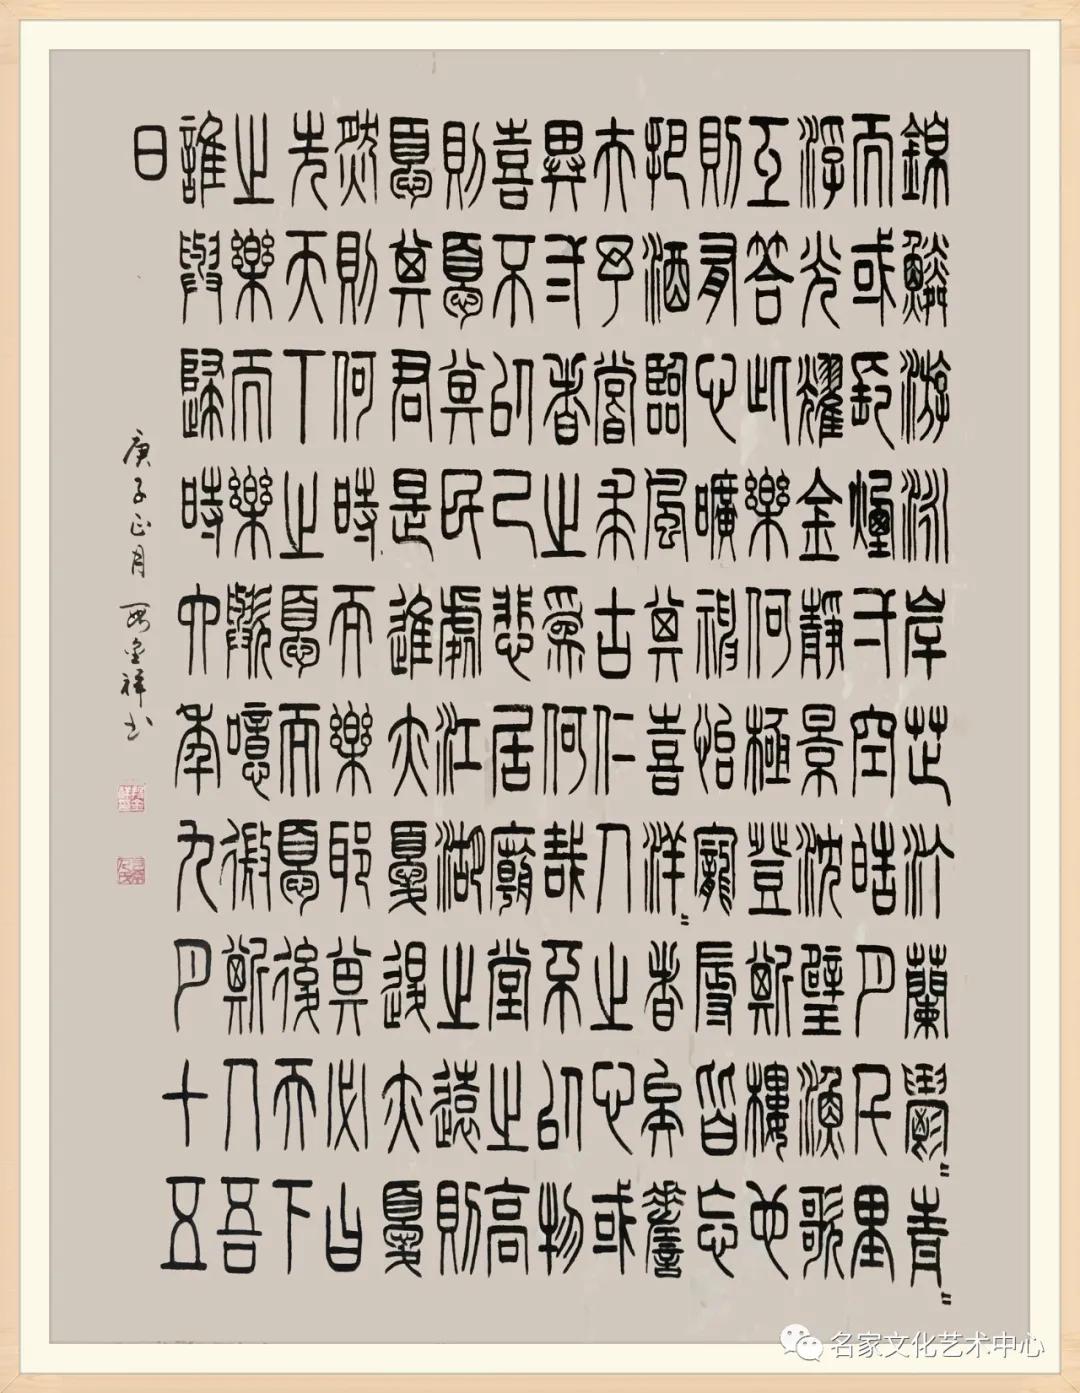 錦鱗游泳岸芷汀蘭鬱〻青〻
而或長煙一空皓月千里
浮光耀金靜景沈璧漁歌
互答此樂何極登斯樓也
則有心曠神怡寵辱皆忘
把酒臨風其喜洋〻者矣嗟
夫予嘗求古仁人之心或
異二者之為何哉不以物
喜不以己悲居廟堂之高
則憂其民處江湖之遠則
憂其君是進亦憂退亦憂
然則何時而樂耶其必曰
先天下之憂而憂後天下
之樂而樂歟噫微斯人吾
誰與歸時六年九月十五
日
庚子正月 金祥书
名家文化艺术中心